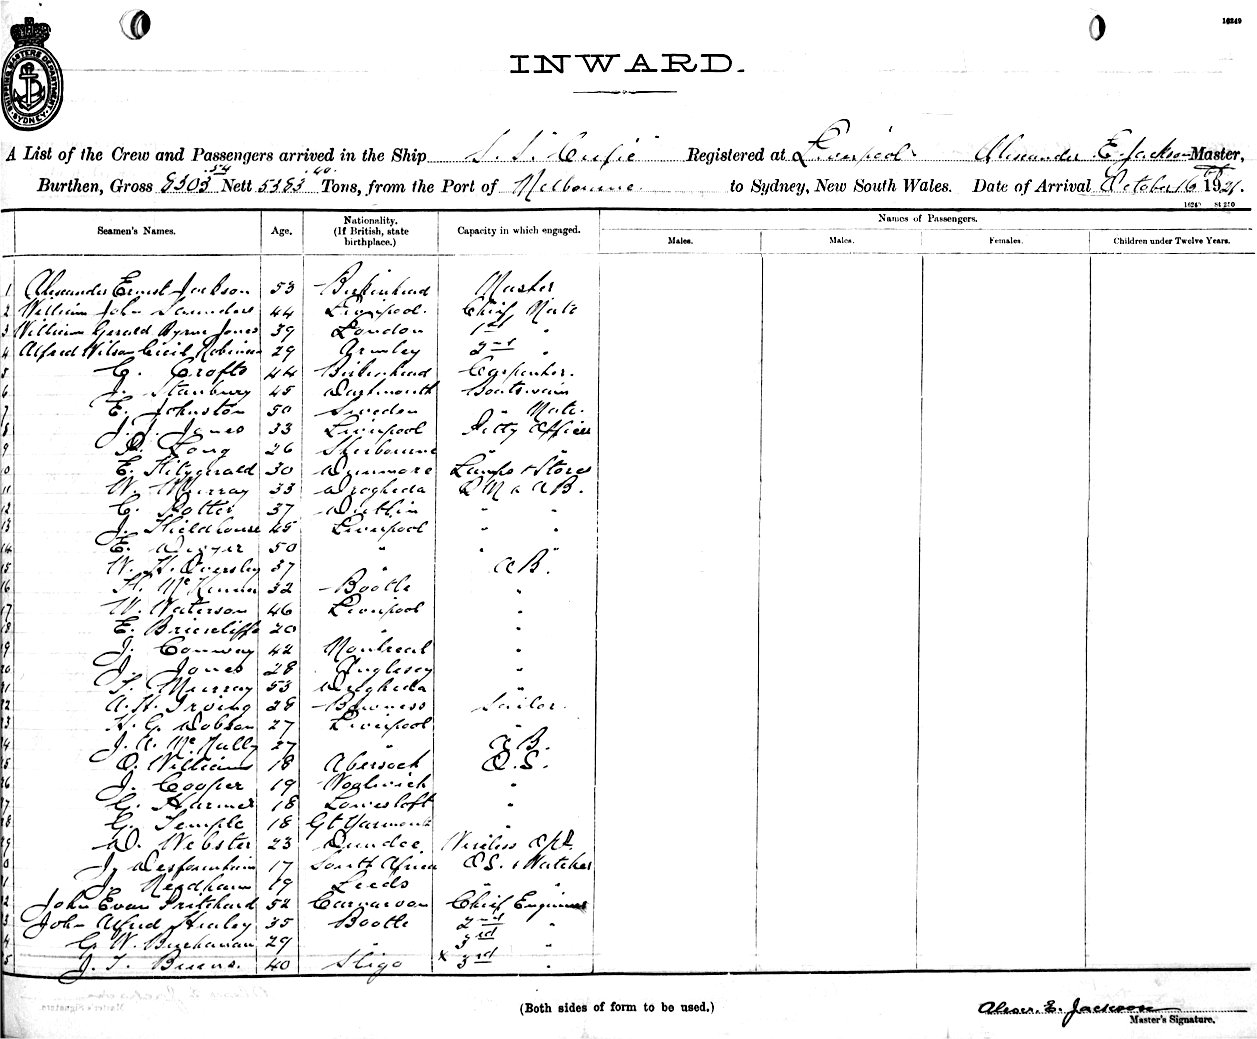 16249
SHIPPING MASTERS DEPARTMENT SYDNEY
INWARD.
A List of the Crew and Passengers arrived in the Ship S. S. Cufic Registered at Liverpool Alexander E. Jackson Master,
Burthen, Gross 8303.54 Nett 5383.40 Tons, from the Port of Melbourne to Sydney, New South Wales. Date of Arrival October 16th 1921.
16249
Seamen's Names. Age. Nationality. (If British, state birthplace.) Capacity in which engaged. Names of Passengers.
Males. Males. Females. Children under Twelve Years.
1 Alexander Ernest Jackson 53 Birkenhead Master
2 William John Saunders 44 Liverpool. Chief Mate
3 William Gerald Byrne Jones 39 London 1st "
4 Alfred Wilson Cecil Robinson 29 Armley 2nd "
5 C. Crofts 44 Birkenhead Carpenter.
6 J. Stanbury 45 Dartmouth Boatswain
7 E. Johnston 50 Sweden " Mate.
8 J. J. Jones 33 Liverpool Petty Officer
9 Long 26 Sherbourne " "
0 E. Fitzgerald 30 Dunmore Lamps & Stores
11 W. Murray 33 Drogheda Q M & A B.
12 C. Potter 37 Dublin " "
13 J. Shieldhouse 45 Liverpool " "
14 E. Dwyer 50 " " "
15 W. H. Oversley 37 " A B.
16 32 Bootle "
17 W. Waterson 46 Liverpool "
18 E. Briercliffe 20 " "
19 J. Conway 42 Montreal "
20 J. Jones 28 Anglesey "
21 T. Murray 53 Drogheda "
22 A. H. Irving 28 Bowness Sailor.
23 H. G. Dobson 27 Liverpool "
24 J. A. McNally 27 " A B.
25 O. Williams 18 Abersoch O. S.
26 J. Cooper 19 Woolwich "
27 G. Harmer 18 Lowestoft "
28 G. Temple 18 Gt Yarmouth "
29 D. Webster 23 Dundee. Wireless Opr.
0 J. 17 South Africa O S. & Watcher
1 J. Needham 19 Leeds " "
2 John Evan Pritchard 52 Carnarvon Chief Engineer
3 John Alfred Healey 35 Bootle 2nd "
4 G. W. Buchanan 29 " 3rd "
5 J. T. Burns. 40 Sligo x 3rd "
(Both sides of form to be used.)
Alexr. E. Jackson
Master's Signature.